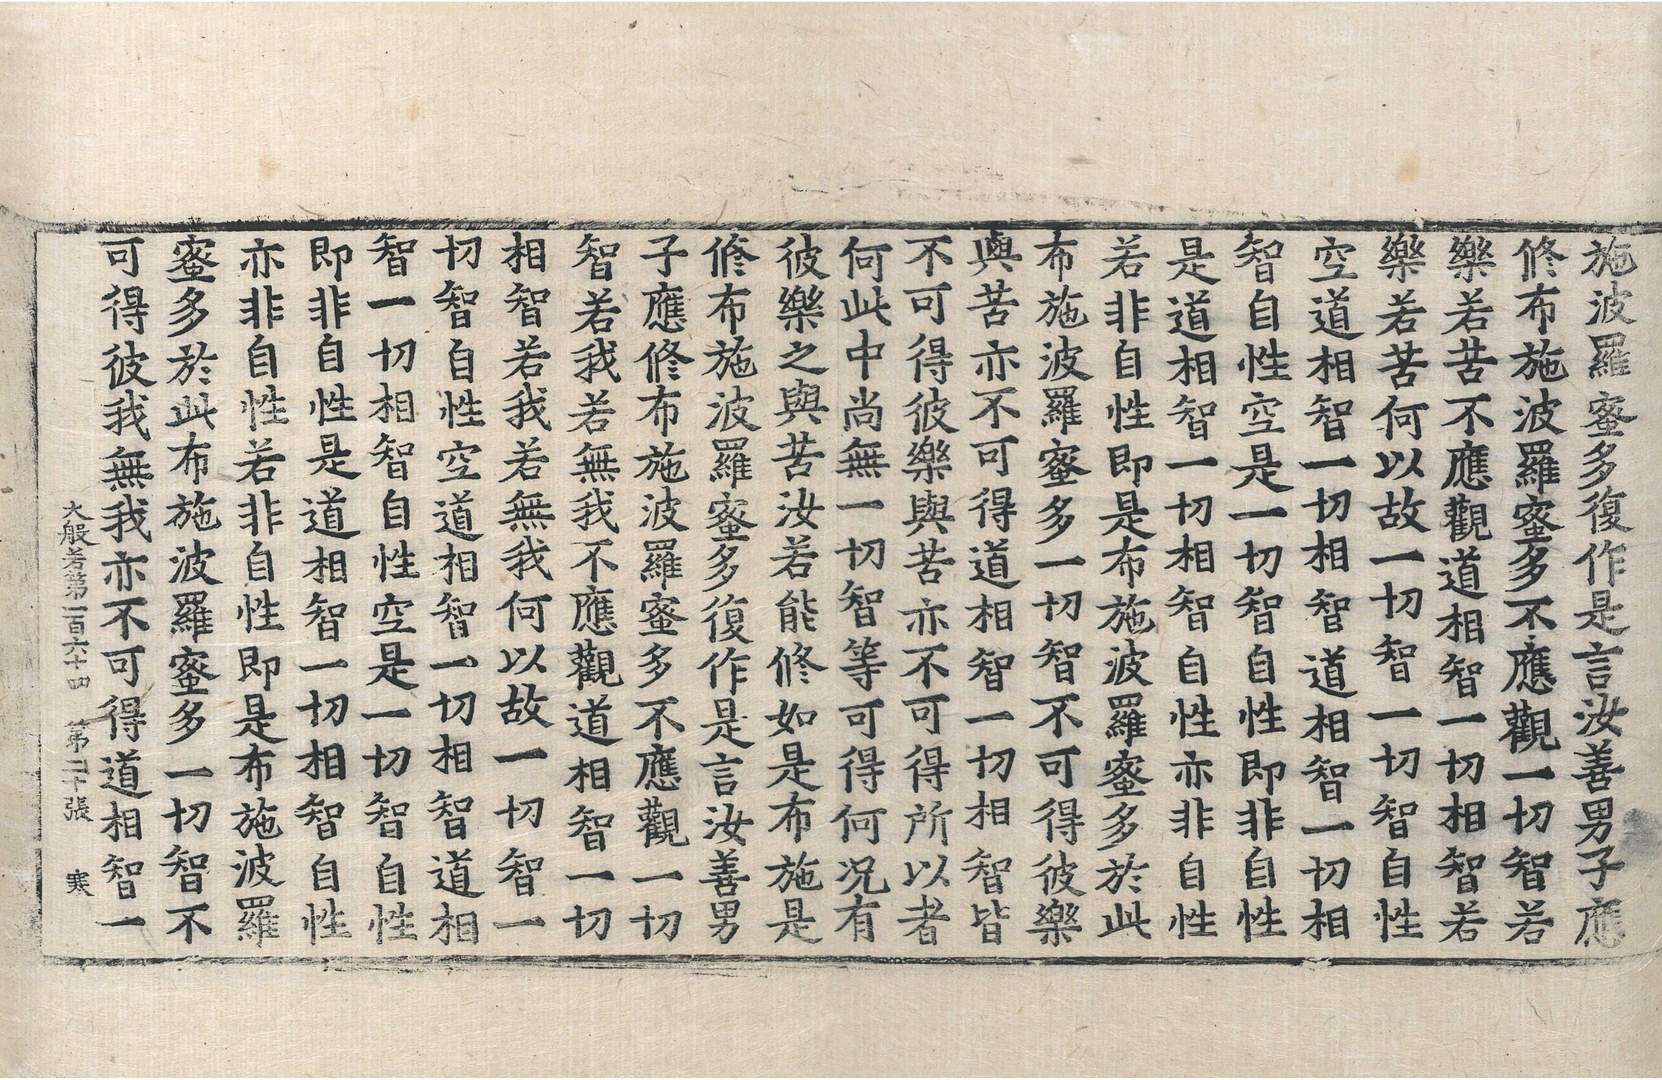 施波羅蜜多復作是言汝善男子應
修布施波羅蜜多不應觀一切智若
樂若苦不應觀道相智一切相智若
樂若苦何以故一切智一切智自性
空道相智一切相智道相智一切相
智自性空是一切智自性即非自性
是道相智一切相智自性亦非自性
若非自性即是布施波羅蜜多於此
布施波羅蜜多一切智不可得彼樂
與苦亦不可得道相智一切相智皆
不可得彼樂與苦亦不可得所以者
何此中尚無一切智等可得何況有
彼樂之與苦汝若能修如是布施是
修布施波羅蜜多復作是言汝善男
子應修布施波羅蜜多不應觀一切
智若我若無我不應觀道相智一切
相智若我若無我何以故一切智一
切智自性空道相智一切相智道相
智一切相智自性空是一切智自性
即非自性是道相智一切相智自性
亦非自性若非自性即是布施波羅
蜜多於此布施波羅蜜多一切智不
可得彼我無我亦不可得道相智一
大般若第一百六十四 第二十張 寒